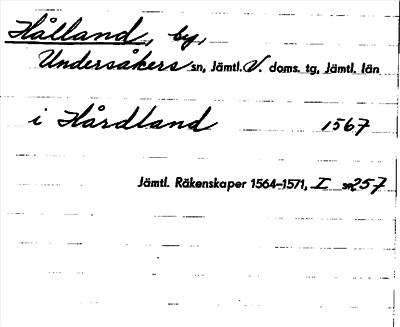 Hålland, by,
Undersåkers sn, Jämtl. V. doms. tg, Jämtl. län
i Hårdland 1567
Jämtl. Räkenskaper 1564–1571, I s. 257